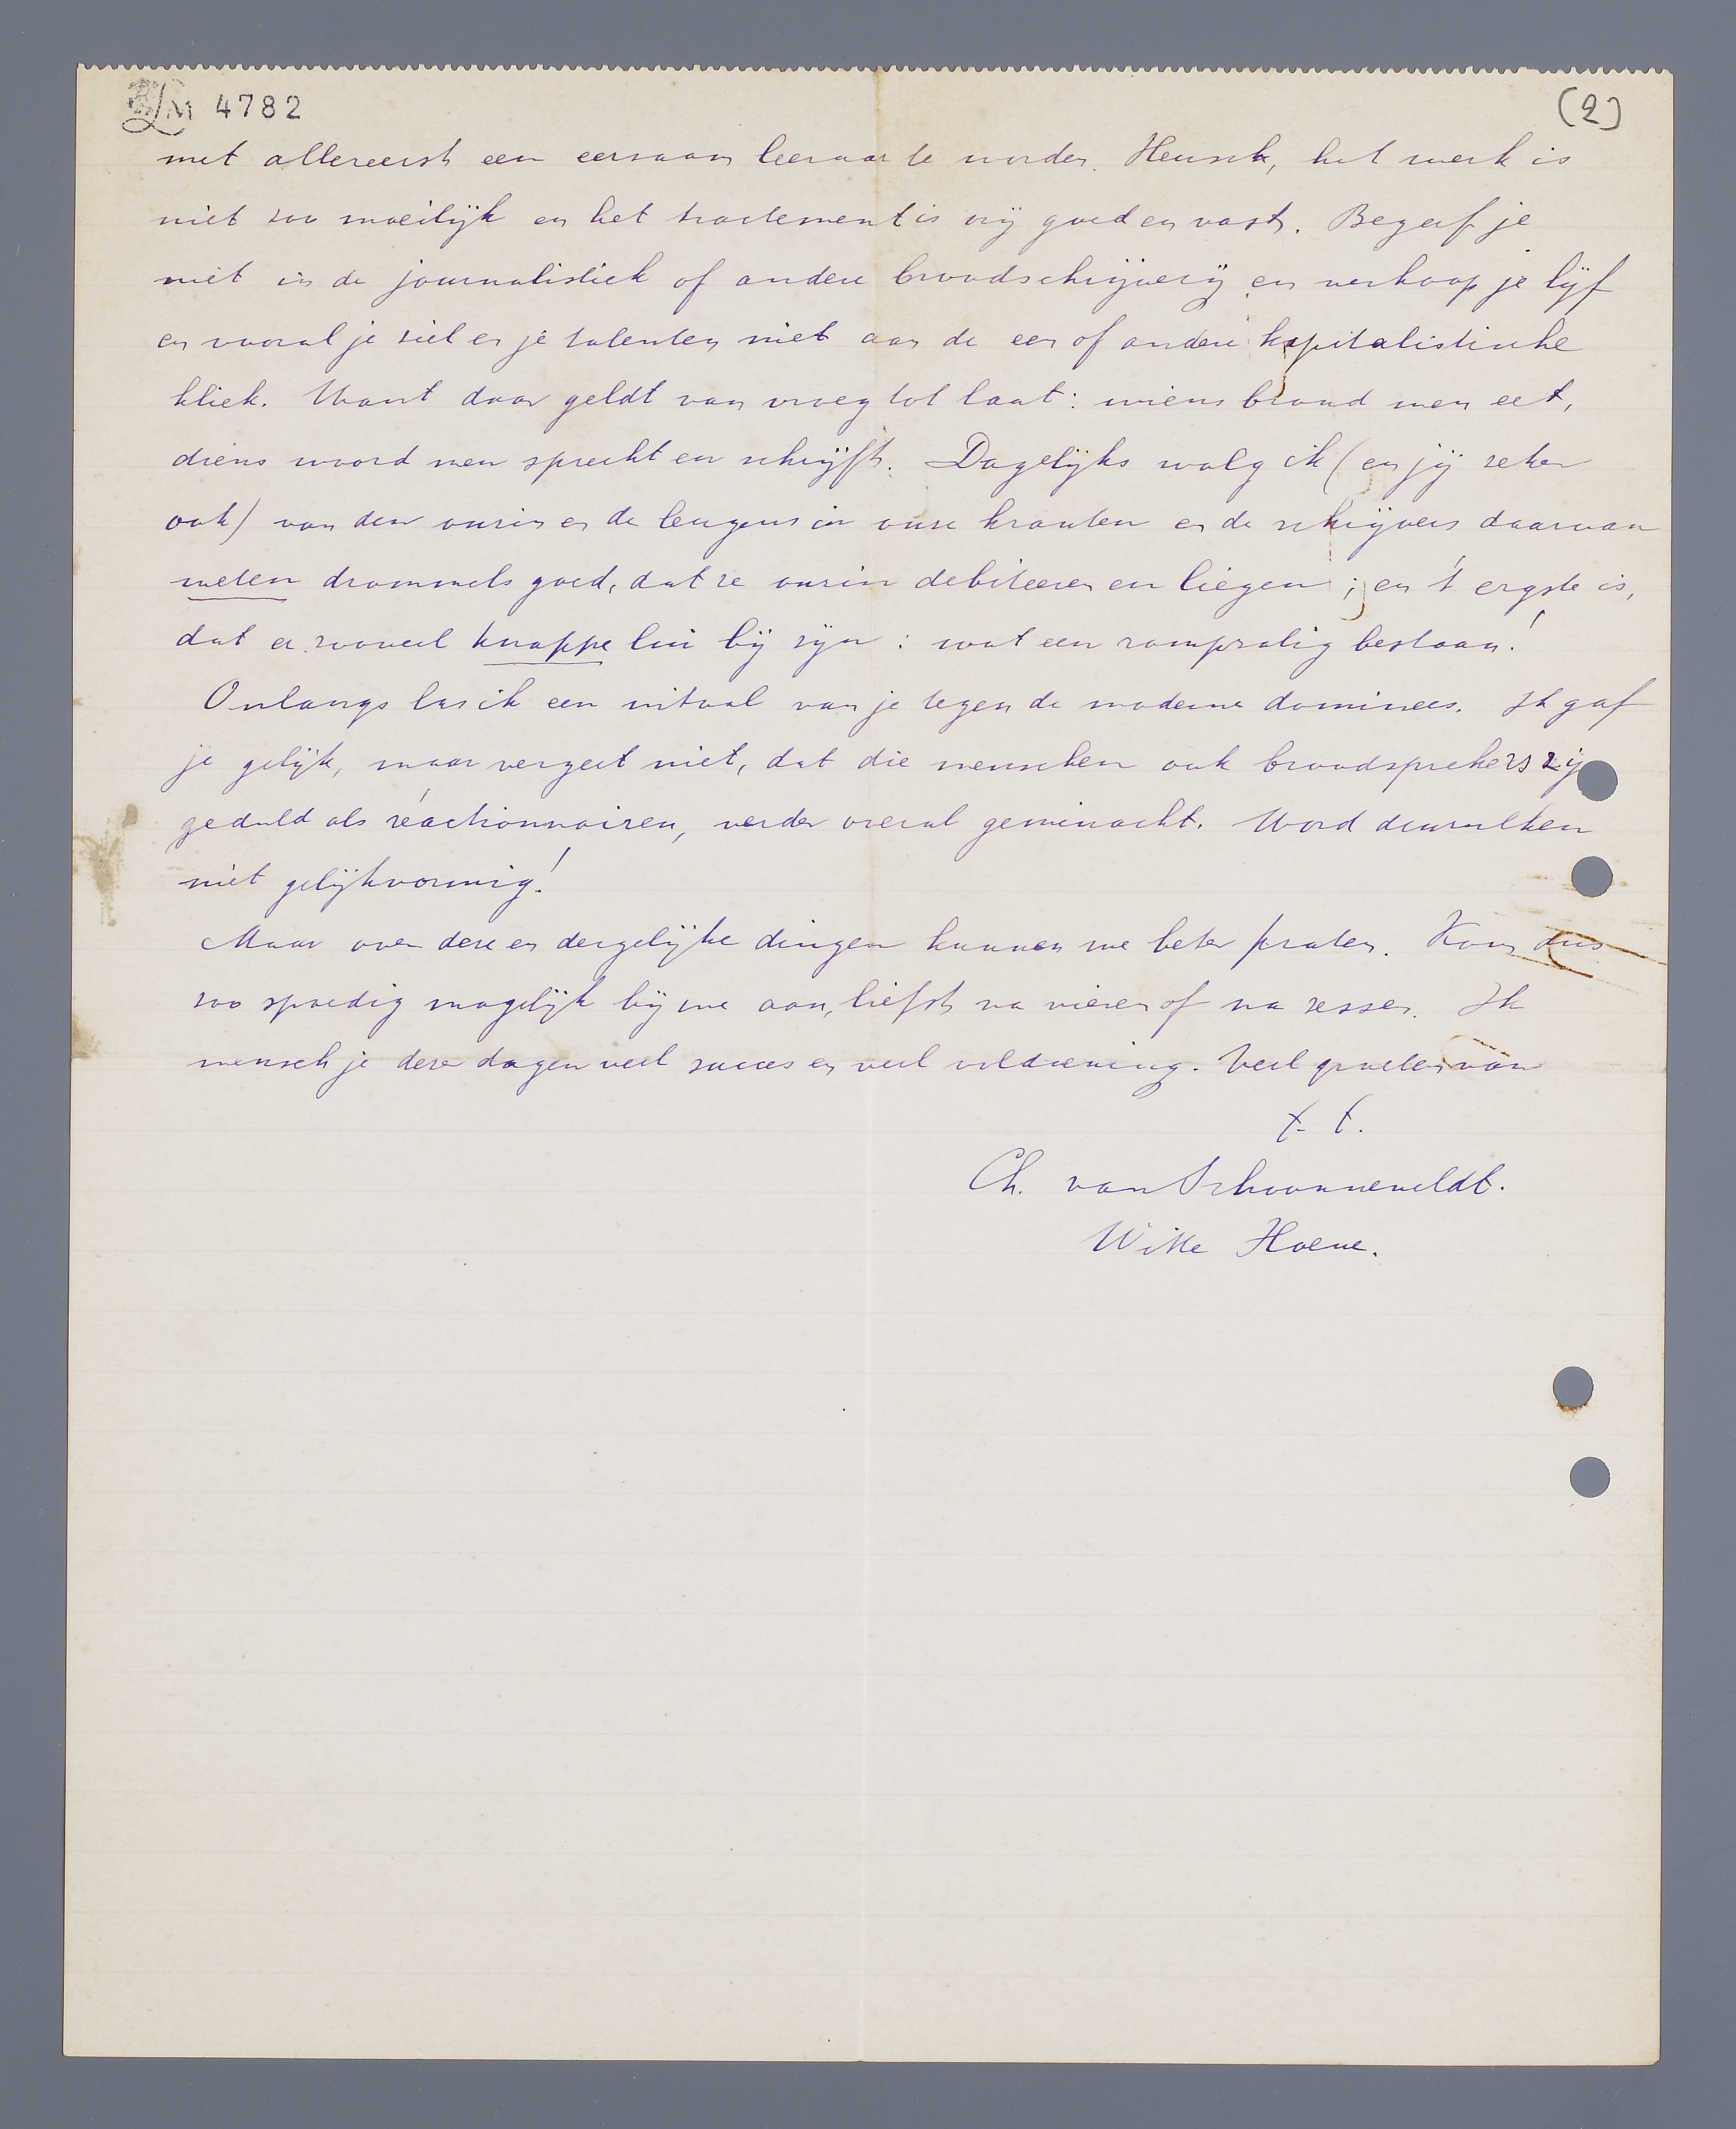 LM 4782
(2)
met allereerst een eerzaam leeraar te worden. Heusch, het werk is
niet zoo moeilijk en het tractement is vrij goed en vast. Begeef je
niet in de journalistiek of andere broodschrijverij en verkoop je lijf
en vooral je ziel en je talenten niet aan de een of andere kapitalistische
kliek. Want daar geldt van vroeg tot laat: wiens brood men eet,
diens woord men spreekt en schrijft. Dagelijks walg ik (en jij zeker
ook) van den onzin en de leugens in onze kranten en de schrijvers daarvan
weten drommels goed, dat ze onzin debiteeren en liegen; en 't ergste is,
dat er zooveel knappe lui bij zijn: wat een rampzalig bestaan!
Onlangs las ik een uitval van je tegen de moderne dominees. Ik gaf
je gelijk, maar vergeet niet, dat die menschen ook broodsprekers zij
geduld als réactionnairen, verder overal geminacht. Word denzulken
niet gelijkvormig!
Maar over deze en dergelijke dingen kunnen we beter praten. Kom dus
zoo spoedig mogelijk bij me aan, liefst na vieren of na zessen. Ik
wensch je deze dagen veel succes en veel voldoening. Veel groeten van
t. t.
Ch. van Schoonneveldt.
Witte Hoeve.